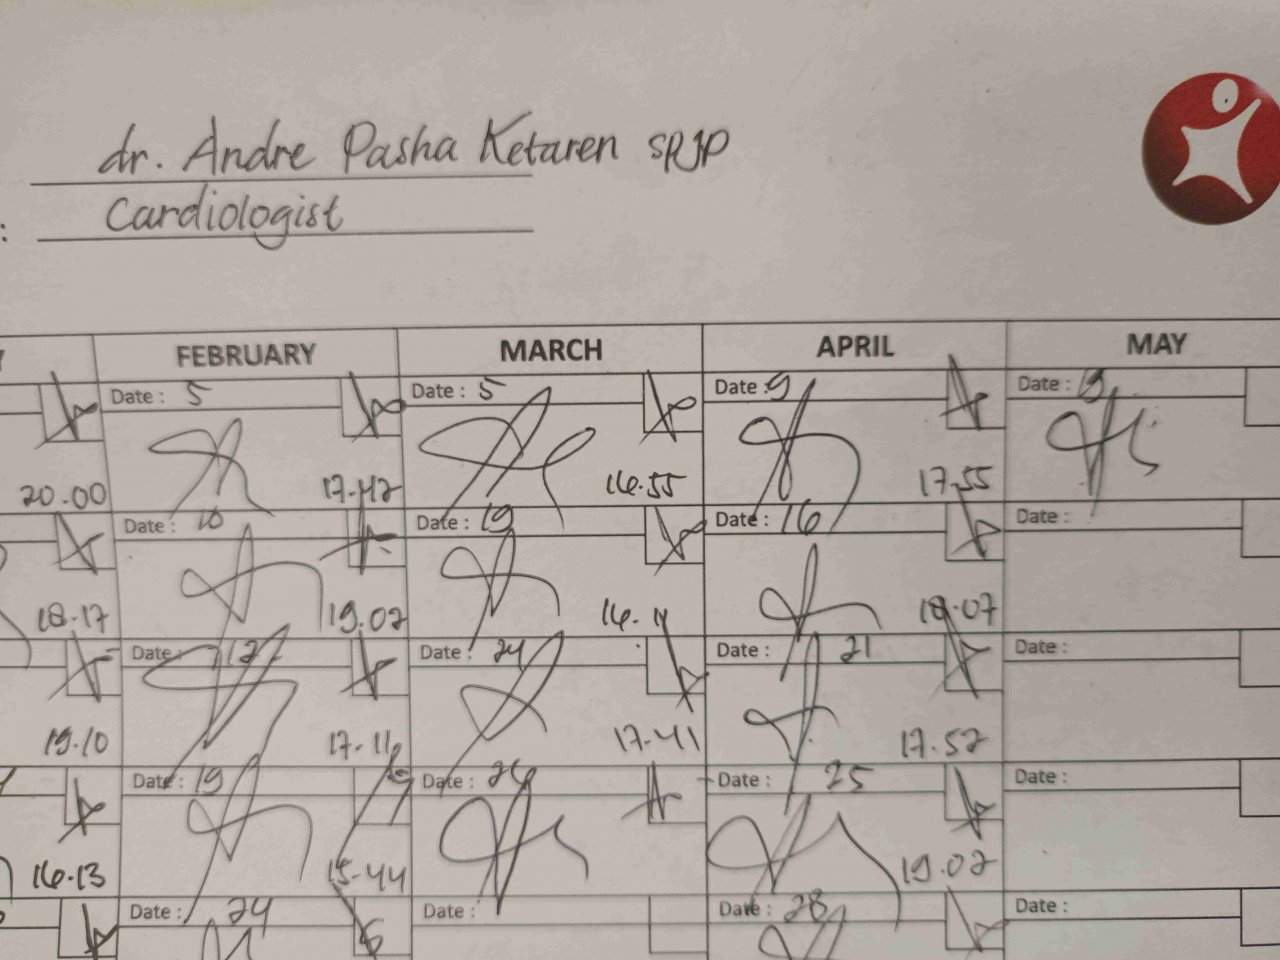 dr. Andre Pasha Ketaren SPJP
: Cardiologist
FEBRUARY MARCH APRIL MAY
Date : 5 Date : 5 Date : 9 Date :
20.00 17.42 16.55 17.55
Date : 10 Date : 19 Date : 16 Date :
18.17 19.02 16.11 18.07
Date : 12 Date : 24 Date : 21 Date :
19.10 17.16 17.41 17.52
Date : 19 Date : 26 Date : 25 Date :
16.13 15.44 19.02
Date : 24 Date : Date : 28 Date :